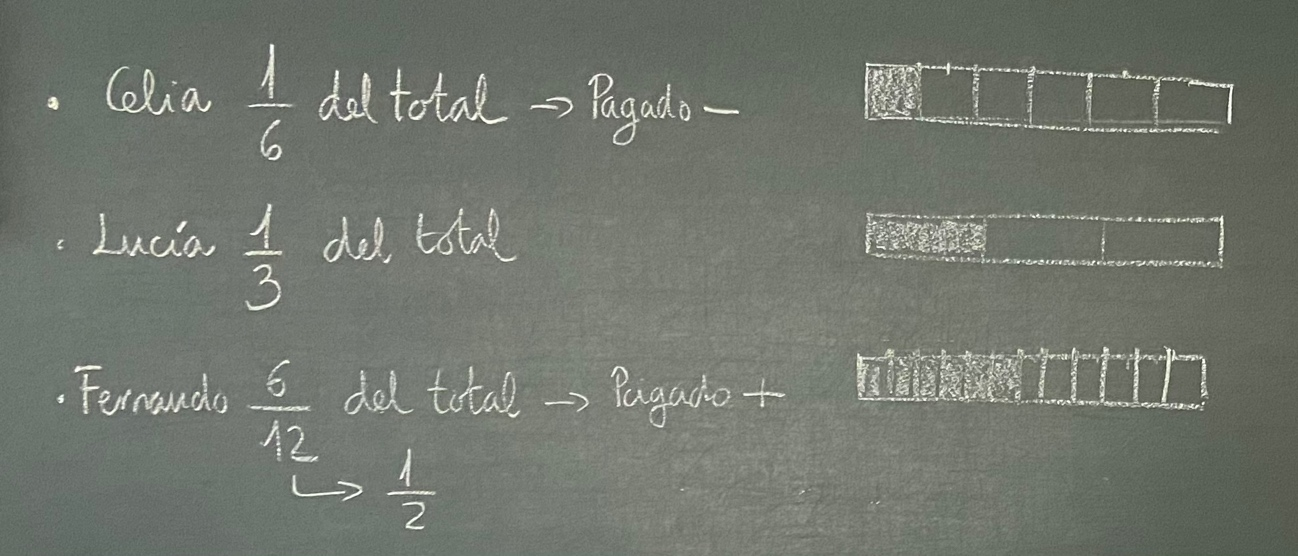 · Celia 1/6 del total → Pagado –
· Lucía 1/3 del total
· Fernando 6/12 del total → Pagado +
↳ 1/2